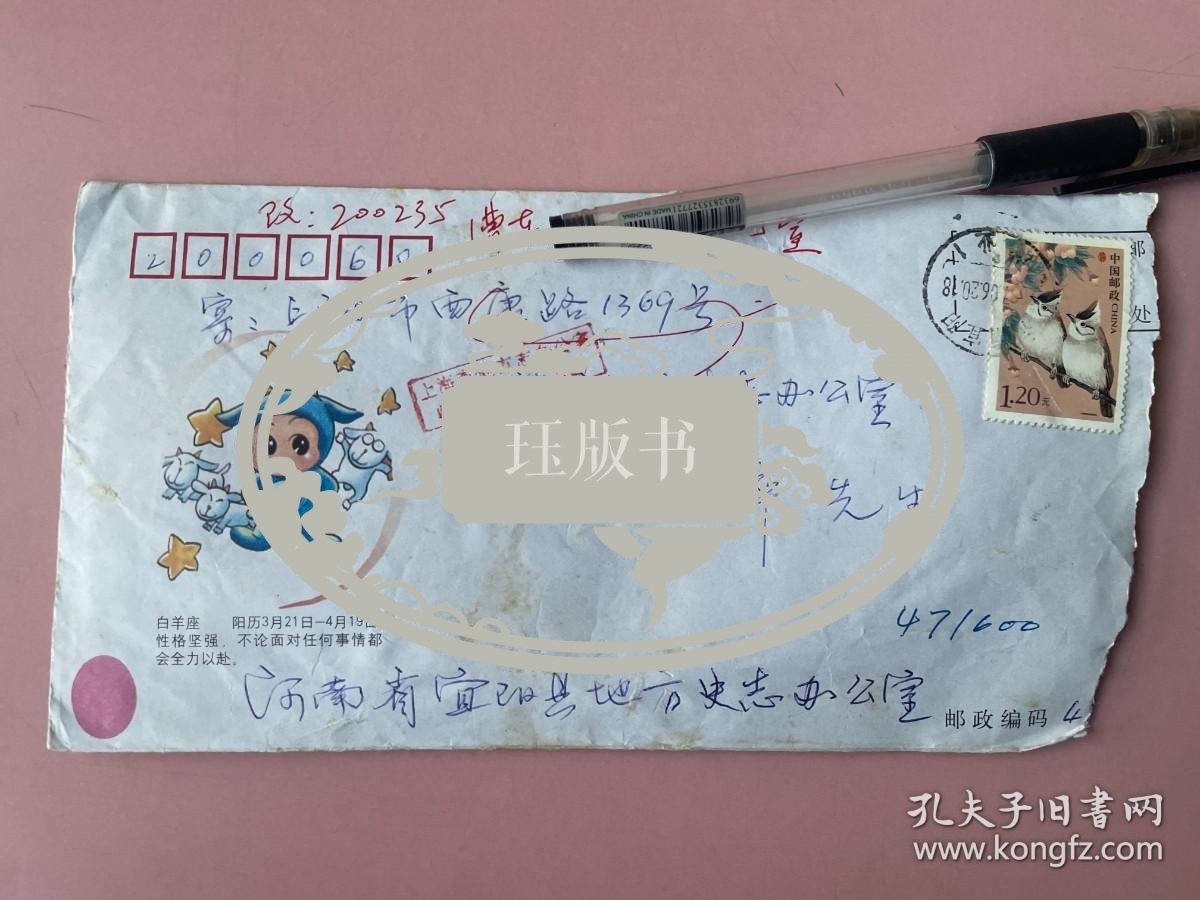 改：200235
漕东
室
200060
寄：上 市西康路1369号
上海
志办公室
珏版书
先生
中国邮政 CHINA
1.20元
宜阳
06.20.18
邮
处
6932835327721 MADE IN CHINA
白羊座 阳历3月21日—4月19日
性格坚强，不论面对任何事情都
会全力以赴。
471600
河南省宜阳县地方史志办公室
邮政编码 4
孔夫子旧书网
www.kongfz.com